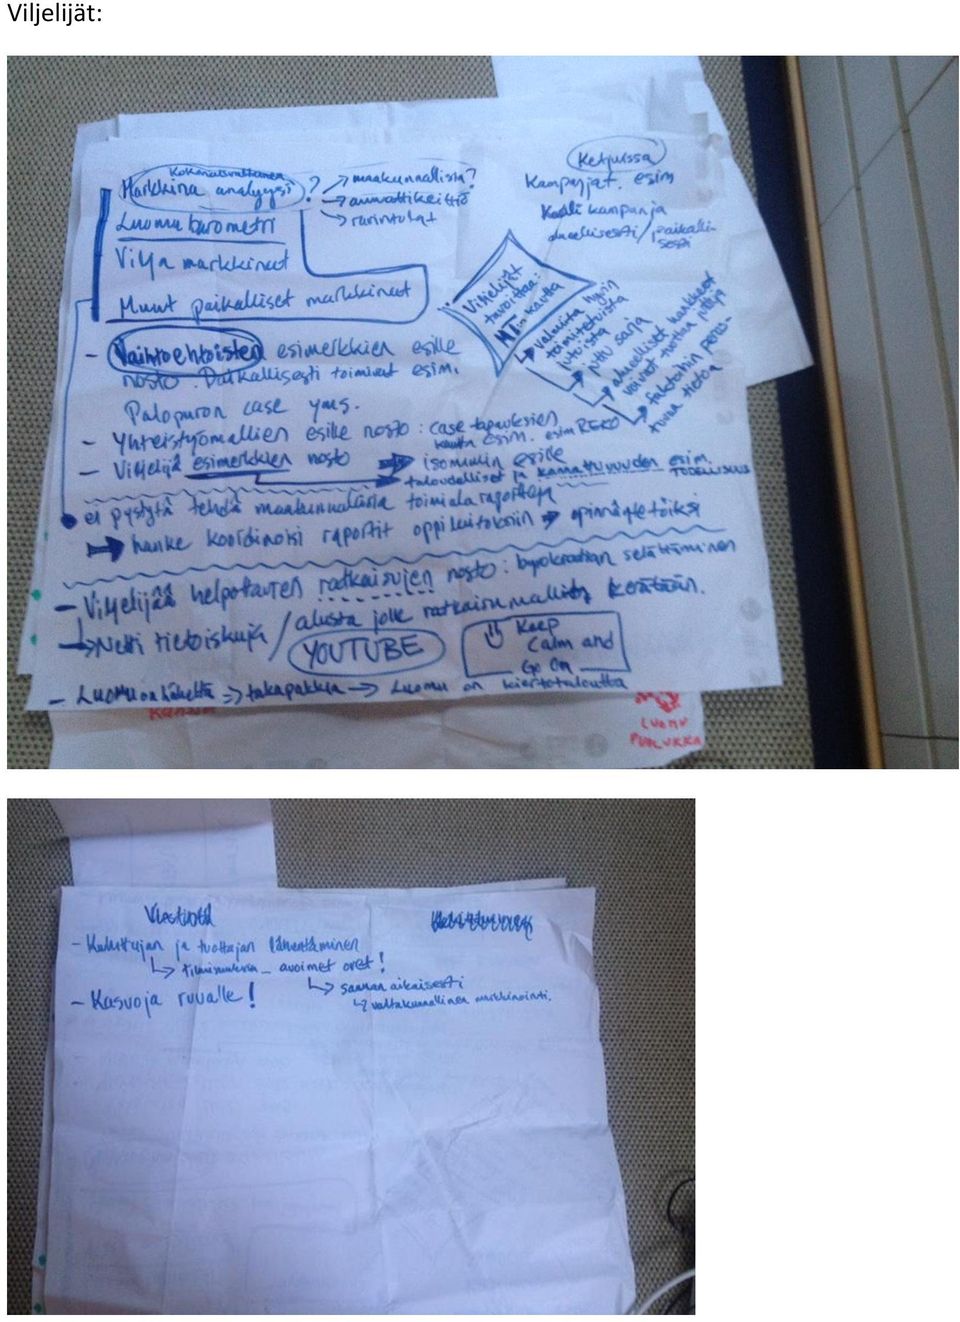 Viljelijät:
Kokonaisvaltainen
Markkina analyysi ? → maakunnallista?
→ ammattikeittiö
→ ravintolat
Luomu barometri
Vilja markkinat
Muut paikalliset markkinat
Ketjuissa
Kampanjat. esim
kampanja
alueellisesti/paikalli-
sesti
Viljelijät
tavoittaa:
MT:n kautta
→ valmiita hyvin
toimitetuista
jutoista
→ juttu sarja
→ alueelliset hankkeet
voivat tuottaa juttuja
→ faktoihin perus-
tuvaa tietoa
- Vaihtoehtoisten esimerkkien esille
nosto. Paikallisesti toimivat esim.
Palopuron case yms.
- Yhteistyömallien esille nosto: case tapauksien
kautta esim. esim REKO
- Viljelijä esimerkkien nosto → isommin esille
taloudelliset ja kannattavuuden esim.
TODELLISUUS
ei pystytä tehdä maakunnallisia toimiala raportteja
→ hanke koordinoisi raportit oppilaitoksiin → opinnäytetöiksi
- Viljelijää helpottavien ratkaisujen nosto: byrokratian selättäminen
→ Netti tietoiskuja / alusta jolle ratkaisumallit kerätään.
YOUTUBE
Keep
Calm and
Go On
- Luomu on → takapakkia → Luomu on kiertotaloutta
LUOMU
PUOLUKKA
Viestintä
- Kuluttajan ja tuottajan lähentäminen
→ avoimet ovet!
→ saman aikaisesti
→ valtakunnallinen markkinointi.
- Kasvoja ruualle!